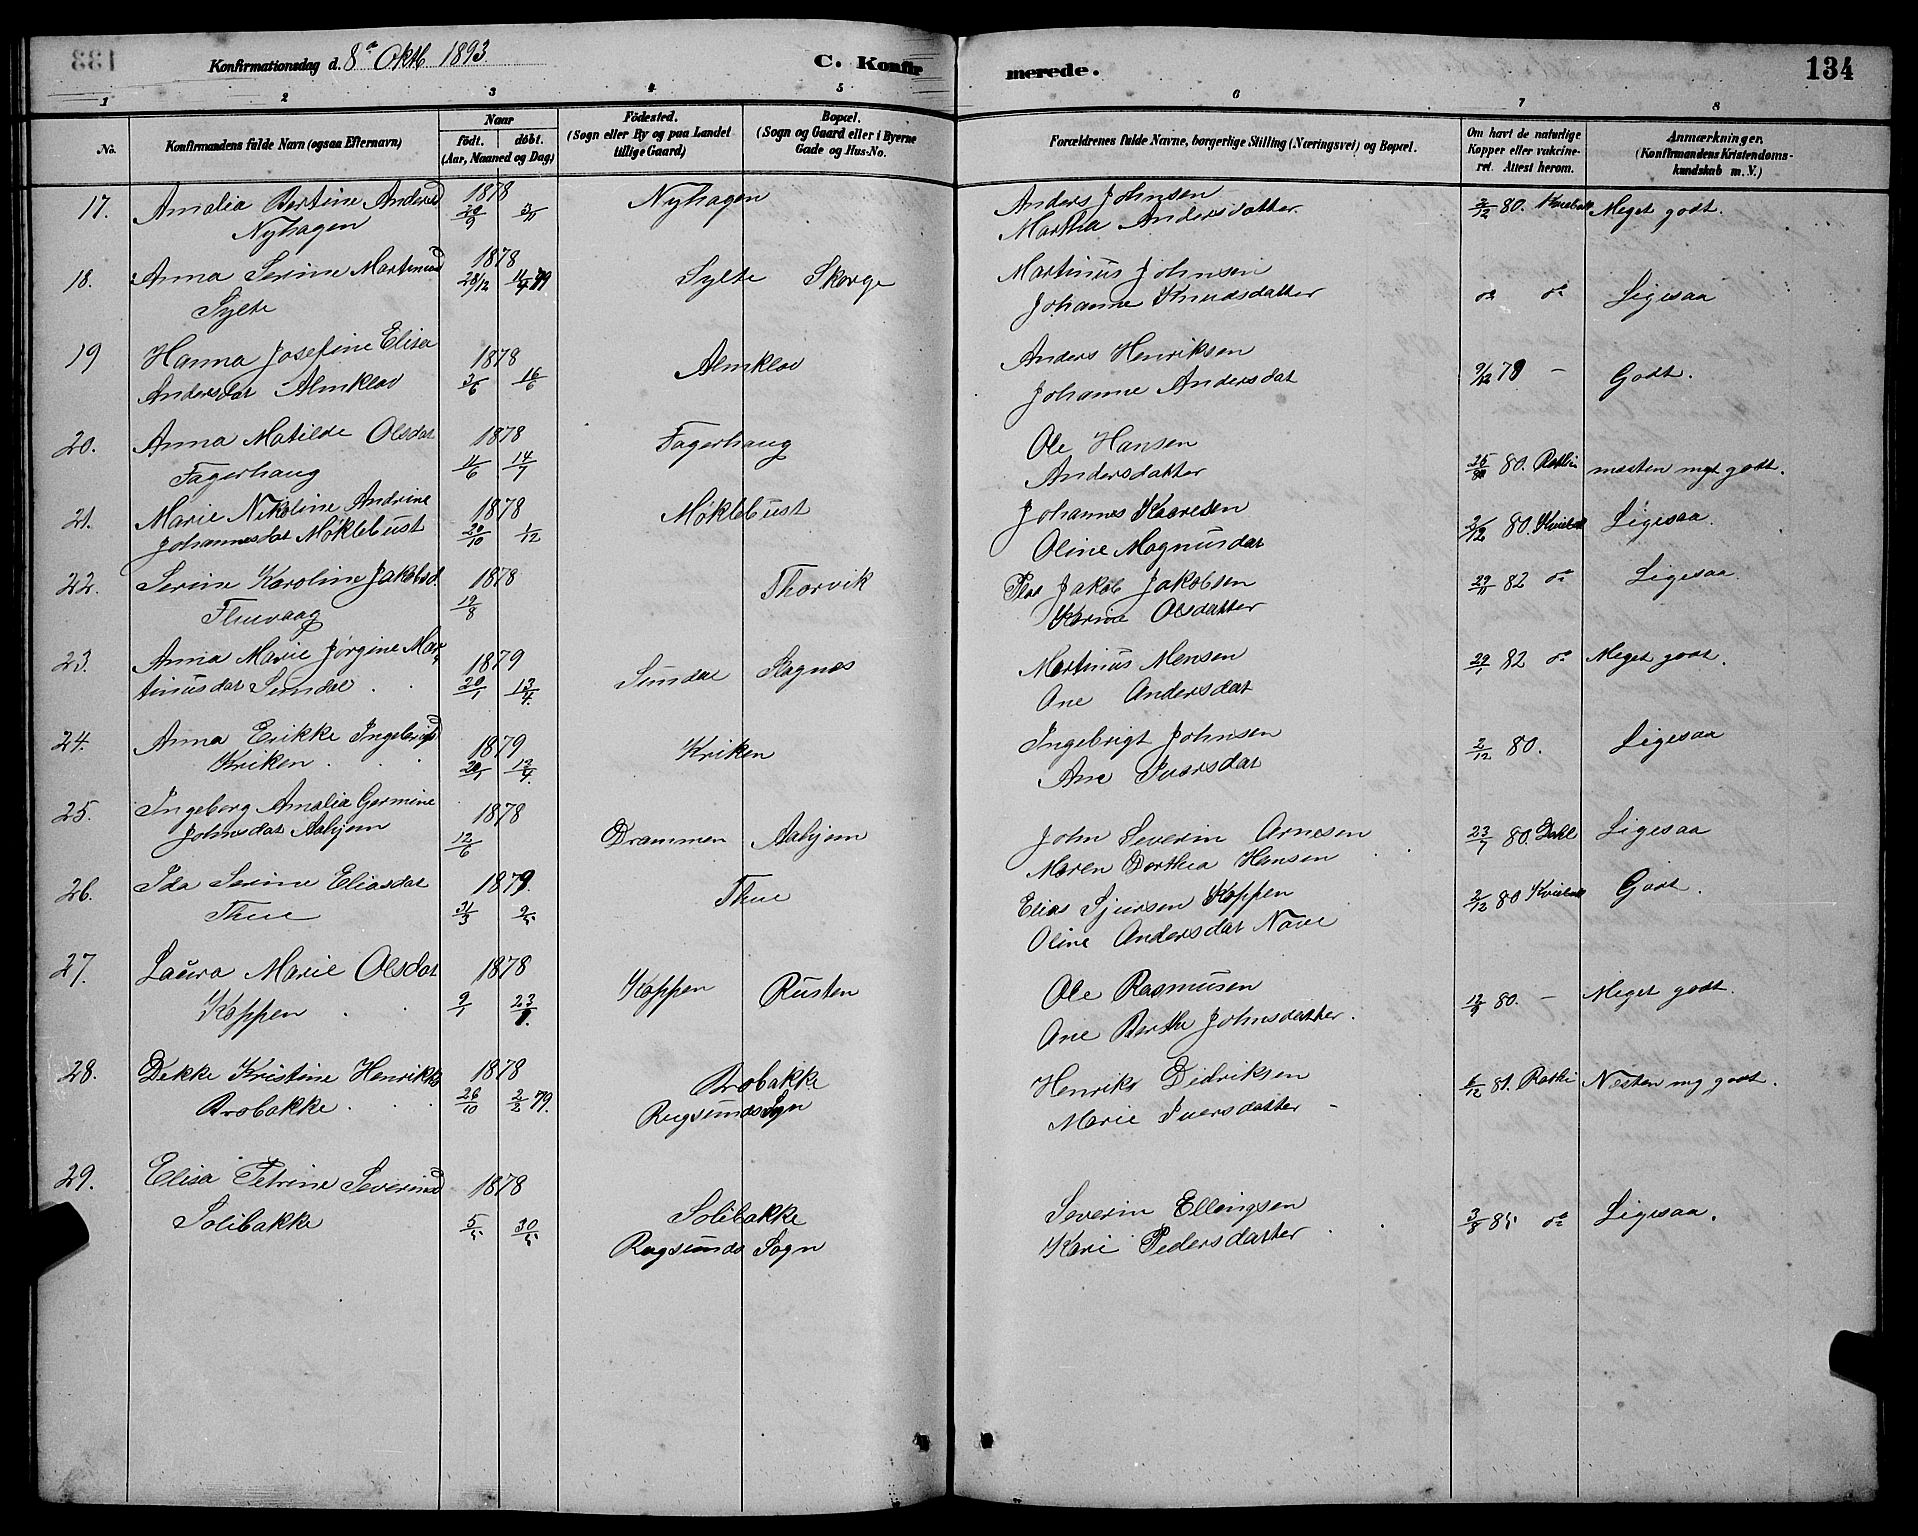 133
Konfirmationsdag d. 8de Oktb 1893
C. Konfir
merede.
134
1 2 3 4 5 6 7 8
No.
Konfirmandens fulde Navn (ogsaa Efternavn)
Naar
født. døbt.
(Aar, Maaned og Dag)
Födested.
(Sogn eller By og paa Landet
tillige Gaard)
Bopæl.
(Sogn og Gaard eller i Byerne
Gade og Hus-No.
Forældrenes fulde Navne, borgerlige Stilling (Næringsvei) og Bopæl.
Om havt de naturlige
Kopper eller vakcine-
ret. Attest herom.
Anmærkninger.
(Konfirmandens Kristendoms-
kundskab m. V.)
17. Amalia Bertine Andersd 1878 Nyhagen Anders Johnsen 2/12 80. Meget godt.
Nyhagen Martha Andersdatter
18. Anna Serine Martinusd 1878 28/12 Sylte Skorge Martinus Johnsen do do Ligesaa
Sylte Johanne Knudsdatter
19 Hanna Josefine Elisa 1878 Almklov Anders Henriksen 9/12 79 - Godt.
Andersdat Almklov 3/6 16/6 Johanne Andersdat
20. Anna Matilde Olsdat 1878 Fagerhaug Ole Hansen
Fagerhaug 11/6 14/7 Andersdatter 80. næsten mgt godt.
21. Marie Nikoline Andrine 1878 Møklebust Johannes Kaaresen 2/12 80. Ligesaa.
Johannesdat Møklebust 20/10 1/12 Oline Magnusdat
22. Serine Karoline Jakobsd. 1878 Thorvik Jakob Jakobsen 82 do Ligesaa.
12/8 Karine Olsdatter
23. Anna Marie Jørgine Mar- 1879 Sundal Sagnes Martinus Monsen 29/1 82 do Meget godt.
tinusdat Sundal 20/1 13/4 Ane Andersdat
24. Anna Erikke Ingebrigtsd 1879 Kriken Ingebrigt Johnsen 2/12 80. Ligesaa
Kriken 13/4 Ane Iversdat
25. Ingeborg Amalia Germine 1878 Drammen Aahjem John Severin Arnesen 23/7 80. Dahl Ligesaa
Johnsdat Aahjem 12/6 Maren Dorthea Hansen
26. Ida Serine Eliasdat 1879. Thue Elias Sjursen Koppen 2/12 80 Godt.
Thue 31/3 2/5 Oline Andersdat Nave
27. Laura Marie Olsdat 1878 Koppen Rusten Ole Rasmusen 80. - Meget godt.
Koppen 9/1 Ane Berthe Johnsdatter.
28. Dekke Kristine Henriksd 1878 Brobakke Henrik Didriksen 6/12 81. Næsten mg godt.
Brobakke 26/10 2/2 79. Rugsunds Sogn Marie Iversdatter -
29. Elisa Petrine Severinsd 1878 Severin Ellingsen 3/8 85 do Ligesaa.
Solibakke 5/5 30/5 Solibakke Kari Pedersdatter
Rugsunds Sogn